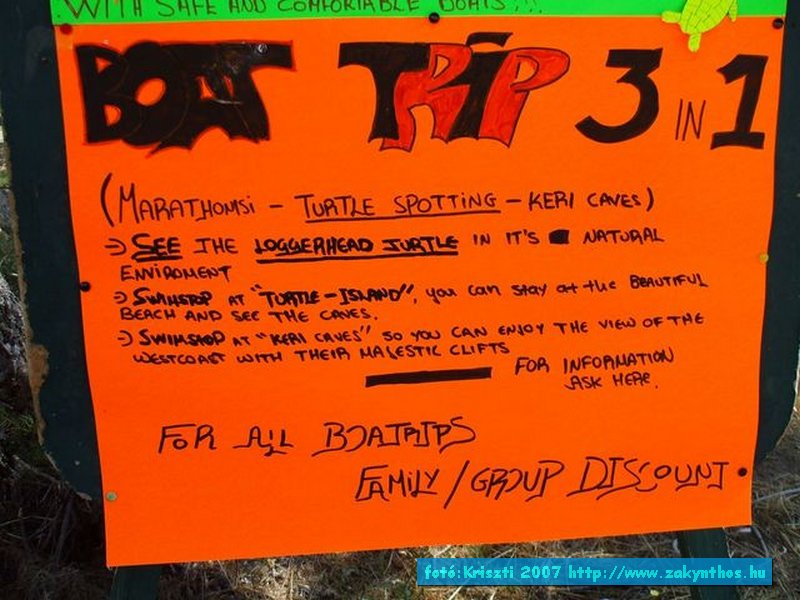 WITH SAFE AND COMFORTABLE BOATS!!!
BOAT TRIP 3 IN 1
(MARATHONISI - TURTLE SPOTTING - KERI CAVES)
SEE THE LOGGERHEAD TURTLE IN IT'S NATURAL
ENVIROMENT
SWIMSTOP AT "TURTLE-ISLAND", you can stay at the BEAUTIFUL
BEACH AND SEE THE CAVES.
SWIMSTOP AT "KERI CAVES" SO YOU CAN ENJOY THE VIEW OF THE
WESTCOAST WITH THEIR MAJESTIC CLIFTS
FOR INFORMATION
ASK HERE.
FOR ALL BOATRIPS
FAMILY/GROUP DISCOUNT
fotó:Kriszti 2007 http://www.zakynthos.hu